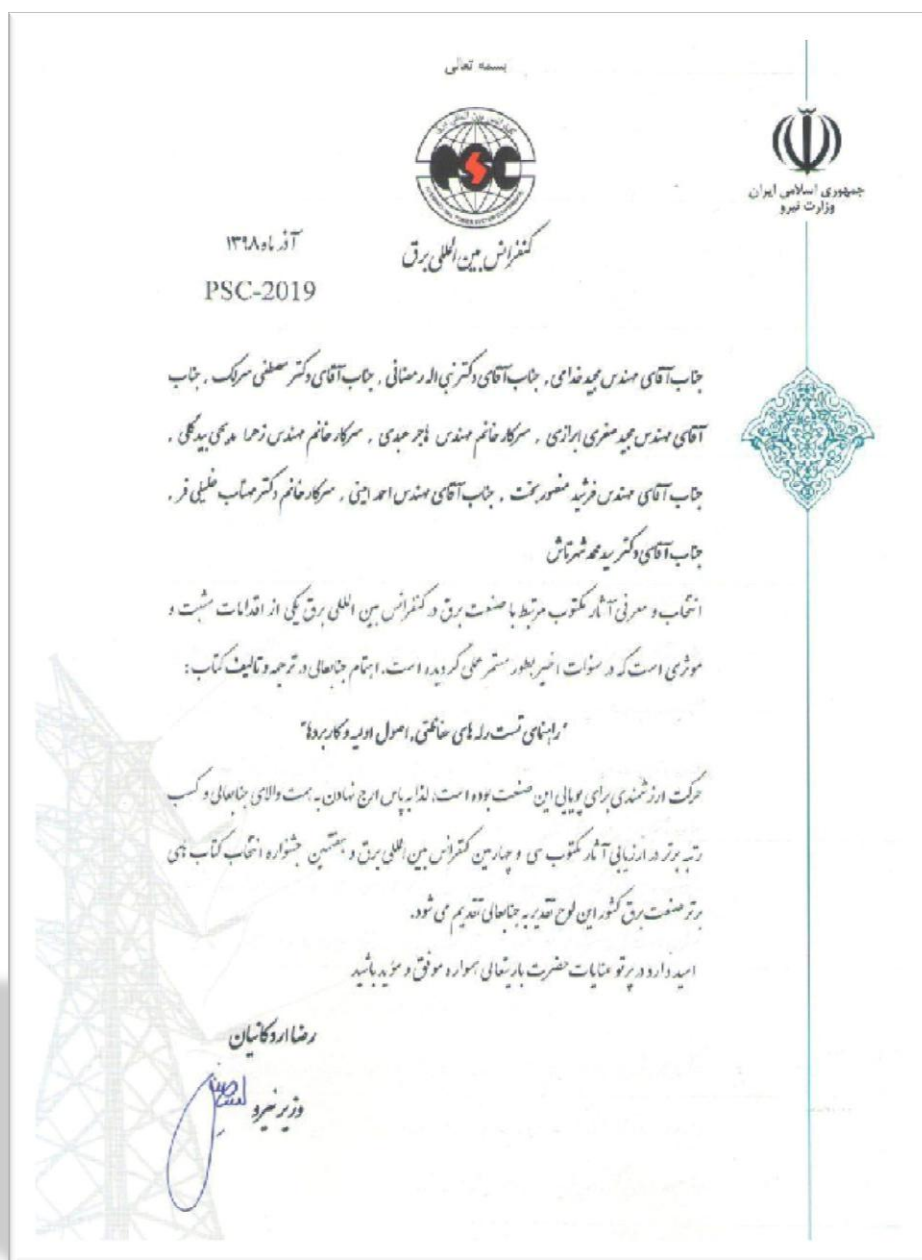 بسمه تعالی
کنفرانس بین المللی برق
PSC
INTERNATIONAL POWER SYSTEM CONFERENCE
جمهوری اسلامی ایران
وزارت نیرو
کنفرانس بین المللی برق
آذر ماه ۱۳۹۸
PSC-2019
جناب آقای مهندس مجید خدامی , جناب آقای دکتر نبی اله رمضانی , جناب آقای دکتر مصطفی سرلک , جناب
آقای مهندس مجید صفری ابرازی , سرکار خانم مهندس هاجر عبدی , سرکار خانم مهندس زهرا مدیحی بیدگلی ,
جناب آقای مهندس فرشید منصوربخت , جناب آقای مهندس احمد امینی , سرکار خانم دکتر مهتاب خلیلی فر ,
جناب آقای دکتر سید محمد شهرتاش
انتخاب و معرفی آثار مکتوب مرتبط با صنعت برق در کنفرانس بین المللی برق یکی از اقدامات مثبت و
موثری است که در سنوات اخیر بطور مستمر عملی گردیده است. اهتمام جنابعالی در ترجمه و تالیف کتاب :
"راهنمای تست رله های حفاظتی, اصول اولیه و کاربردها"
حرکت ارزشمندی برای پویایی این صنعت بوده است، لذا به پاس ارج نهادن به همت والای جنابعالی و کسب
رتبه برتر در ارزیابی آثار مکتوب سی و چهارمین کنفرانس بین المللی برق و هفتمین جشنواره انتخاب کتاب های
برتر صنعت برق کشور این لوح تقدیر به جنابعالی تقدیم می شود.
امید دارد در پرتو عنایات حضرت باریتعالی همواره موفق و مؤید باشید
رضا اردکانیان
وزیر نیرو